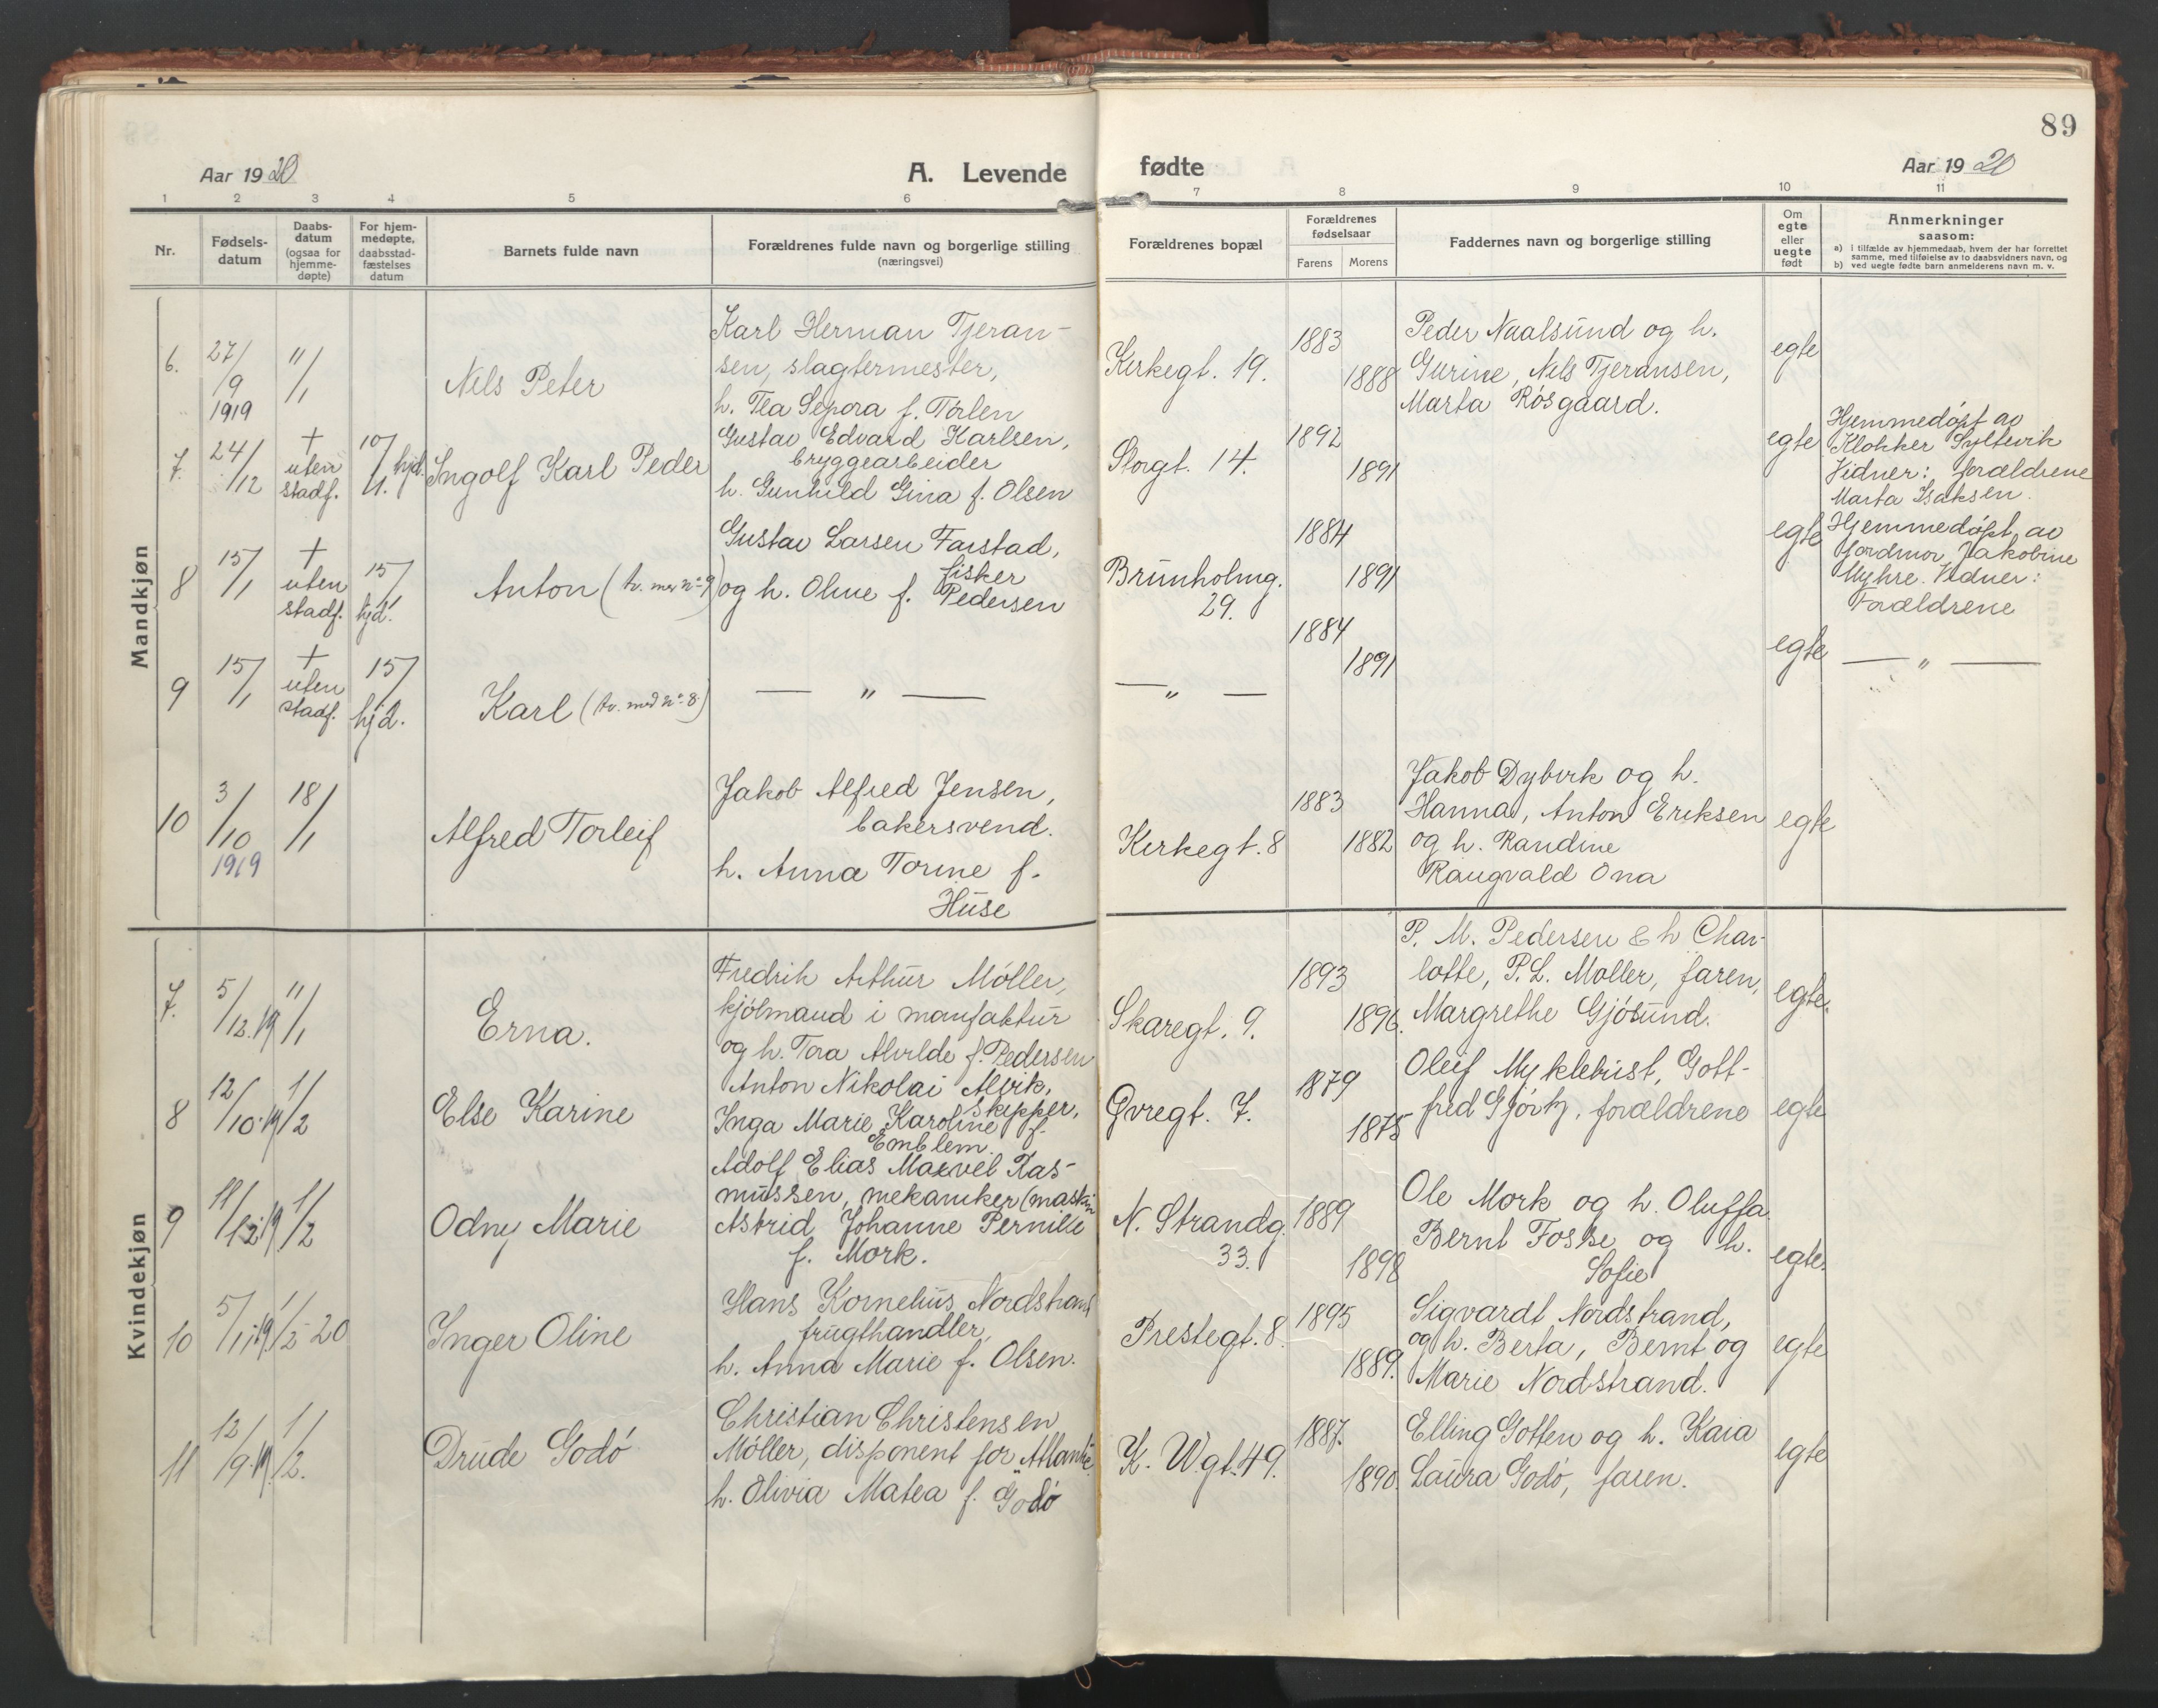 89
Aar 1920
A. Levende
fødte
Aar 1920
1 2 3 4 5 6
7 8 9 10 11
Nr.
Fødsels-
datum
Daabs-
datum
(ogsaa for
hjemme-
døpte)
For hjem-
medøpte,
daabsstad-
fæstelses
datum
Barnets fulde navn
Forældrenes fulde navn og borgerlige stilling
(næringsvei)
Forældrenes bopæl
Forældrenes
fødselsaar
Farens Morens
Faddernes navn og borgerlige stilling
Om
egte
eller
uegte
født
Anmerkninger
saasom:
a) i tilfælde av hjemmedaab, hvem der har forrettet
samme, med tilføielse av to daabsvidners navn, og
b) ved uegte fødte barn anmelderens navn m. v.
Mandkjøn
6.
27/9
1919
11/1
Nels Peter
Karl Herman Tjeran-
sen, slagtermester,
h. Tea Sepora f. Tørlen
Kirkegt. 19.
1883
1888
Peder Naalsund og h.
Gurine, Nils Tjeransen,
Marta Røsgaard.
egte
7.
24/12
+
uten
stadf.
10/1. hjd.
Ingolf Karl Peder
Gustav Edvard Karlsen,
bryggearbeider
h. Gunhild Gina f. Olsen
Storgt. 14.
1892
1891
egte
Hjemmedøpt av
Klokker Syltevik
Vidner: forældrene
Marta Isaksen.
8
15/1
+
uten
stadf.
15/1
hjd.
Anton (tv. med no 9)
Gustav Larsen Farstad,
fisker
og h. Oline f. Pedersen
Brunholmg.
29.
1884
1891
egte
Hjemmedøpt av
jordmor Jakobine
Myhre. Vidner:
Forældrene
9
15/1
+
uten
stadf.
15/1
hjd.
Karl (tv. med no 8.)
— " —
— " —
1884
1891
egte
— " —
10
3/10
1919
18/1
Alfred Torleif
Jakob Alfred Jensen,
bakersvend.
h. Anna Torine f.
Huse
Kirkegt. 8
1883
1882
Jakob Dybvik og h.
Hanna, Anton Eriksen
og h. Randine
Raugvald Ona
egte
Kvindekjøn
7.
5/12.19
11/1
Erna.
Fredrik Arthur Møller,
kjølmand i manufaktur
og h. Tora Alvilde f. Pedersen
Skaregt. 9.
1893
1896.
P. M. Pedersen & h Char-
lotte, P. L. Møller, faren,
Margrethe Gjøsund.
egte.
8
12/10.19
1/2
Else Karine
Anton Nikolai Alvik,
Skipper,
Inga Marie Karoline f.
Emblem.
Øvregt. 7.
1879
1875
Oleif Myklebust, Gott-
fred Gjørtz, forældrene
egte
9
11/12.19
1/2
Odny Marie
Adolf Elias Marvel Ras-
mussen, mekaniker (maskin
Astrid Johanne Pernille
f. Mork.
N. Strandg.
33.
1889
1898
Ole Mork og h. Oluffa
Bernt Fosse og h.
Sofie
egte.
10
5/11.19
1/2 20
Inger Oline
Hans Kornelius Nordstrand
frugthandler,
h. Anna Marie f. Olsen.
Prestegt. 8.
1895
1889.
Sigvardt Nordstrand,
og h. Berta, Bernt og
Marie Nordstrand.
egte
11
12/9.19.
1/2.
Drude Godø
Christian Christensen
Møller, disponent for Atlantic
h. Olivia Matea f. Godø
K. W.gt. 49.
1887.
1890.
Elling Gotten og h. Kaia
Laura Godø, faren.
egte